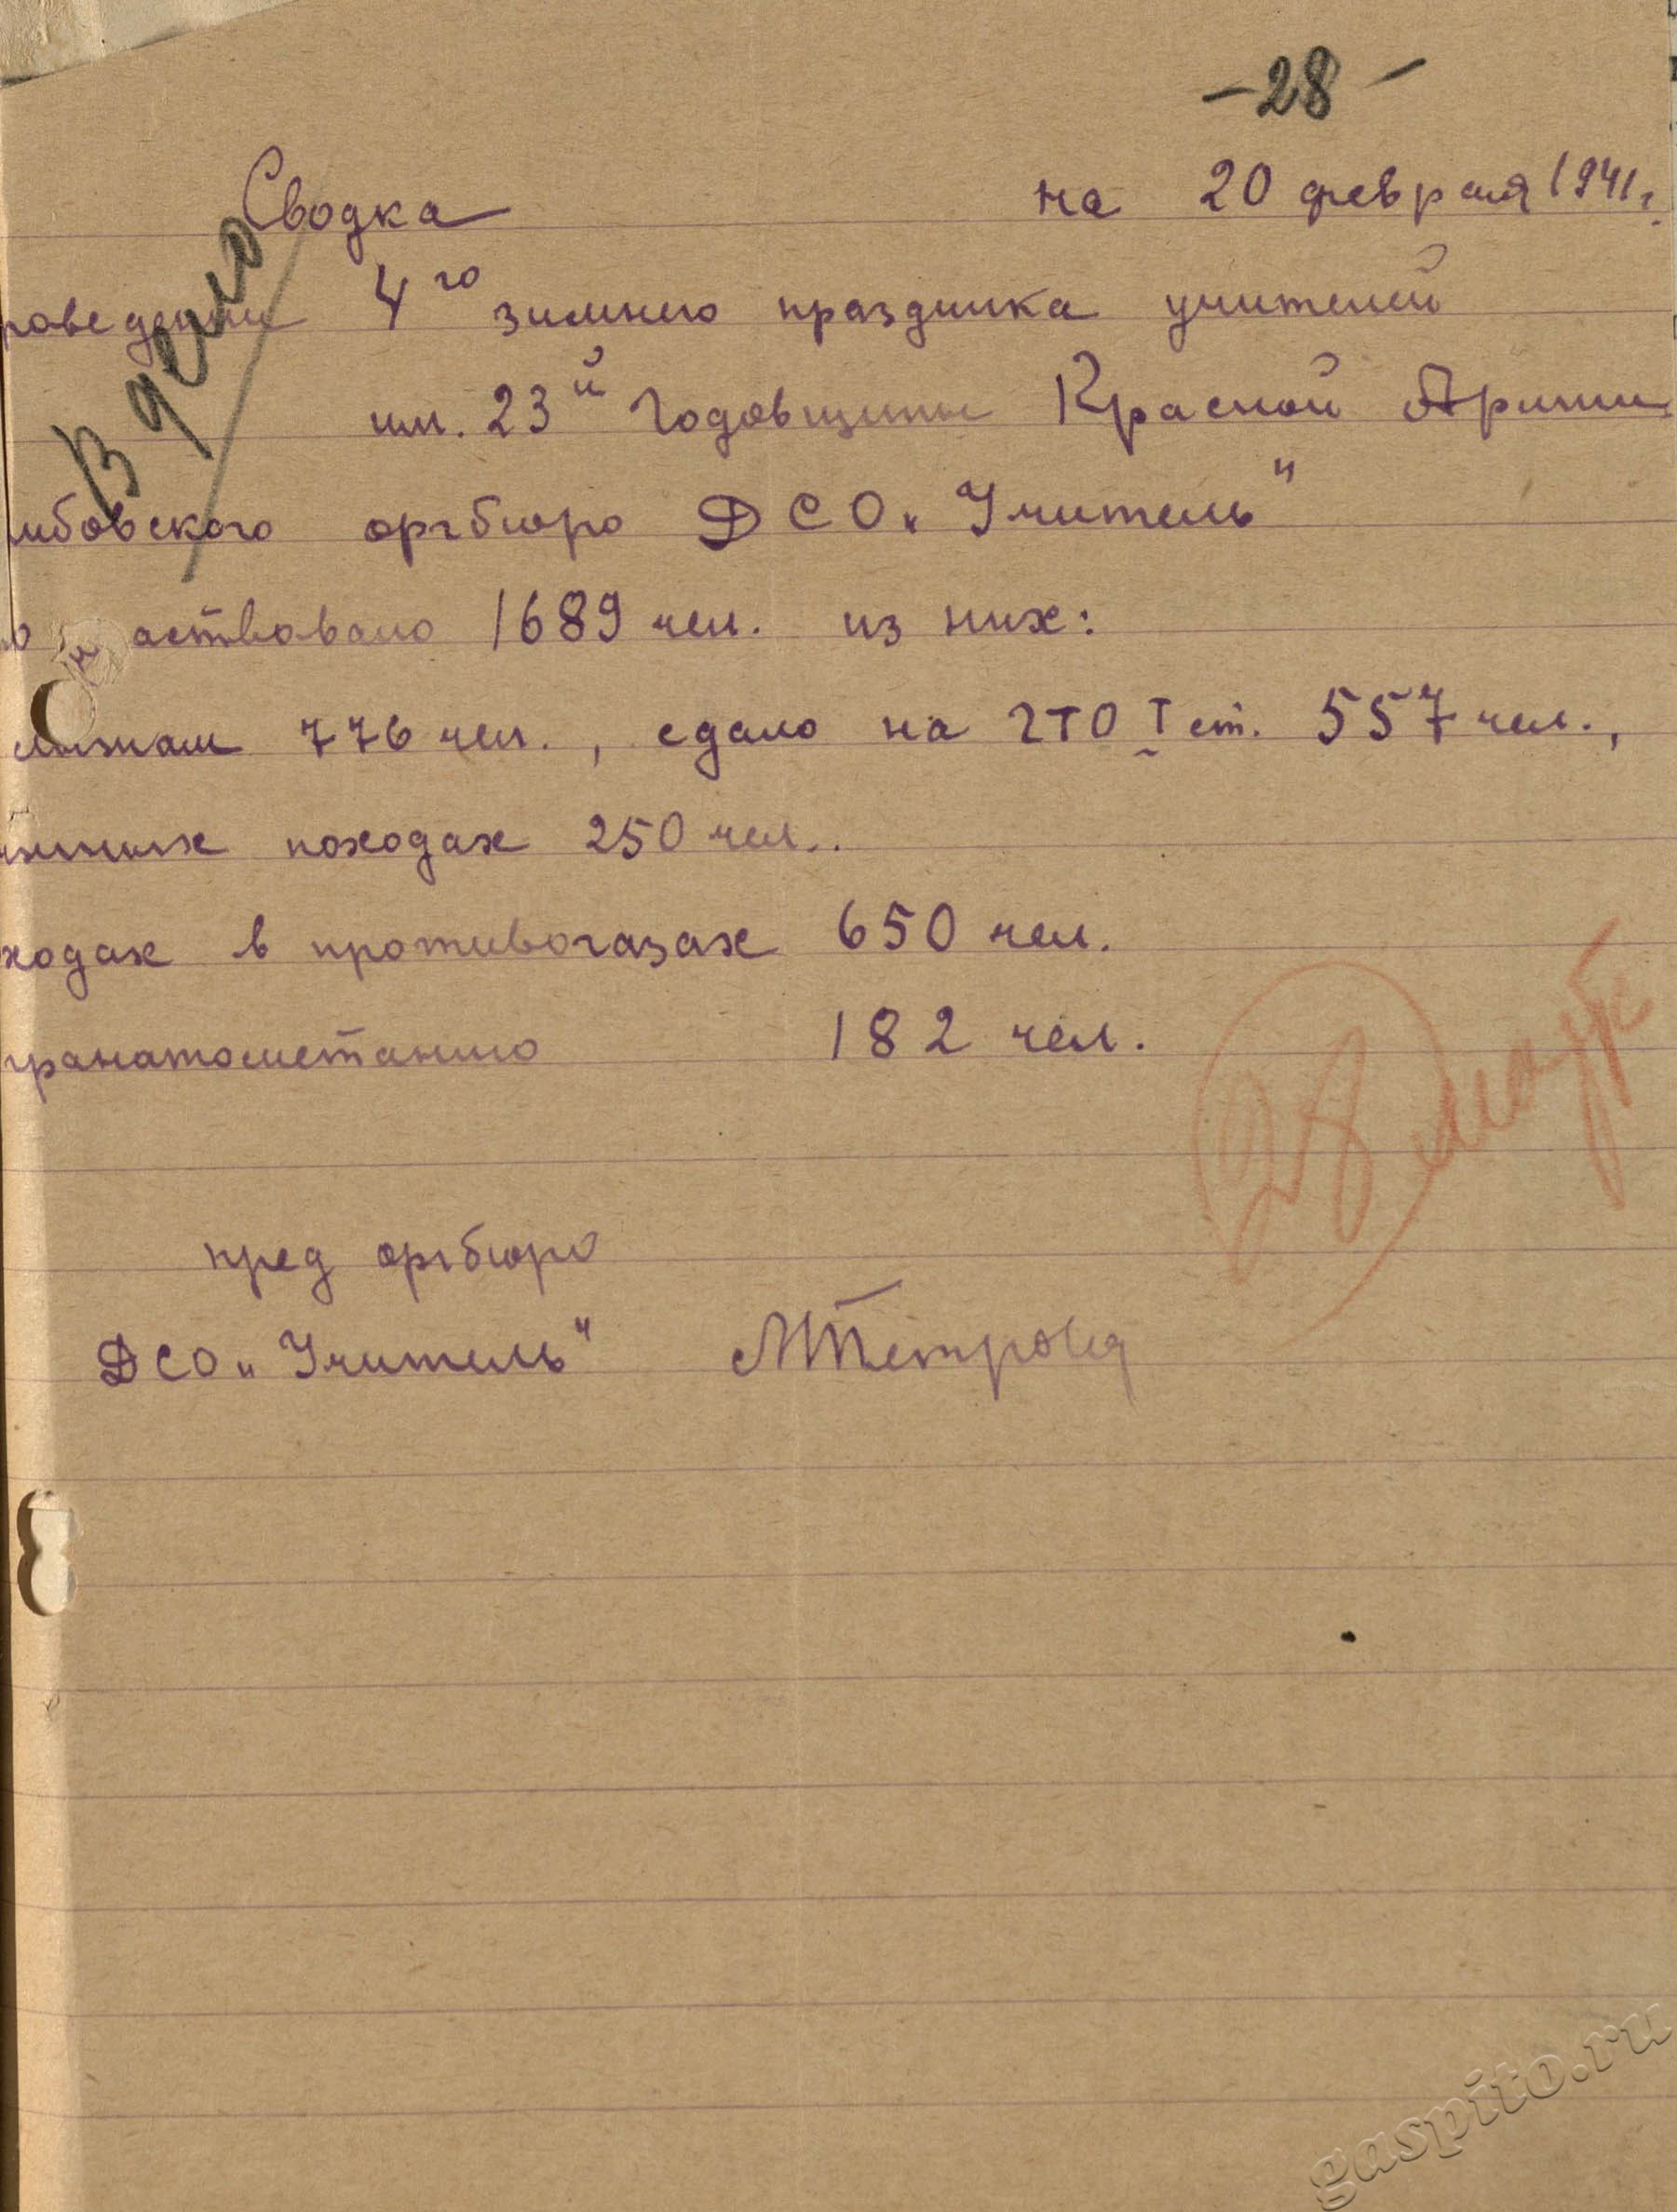 -28-
Сводка на 20 февраля 1941г.
роведении 4го зимнего праздника учителей
им. 23й Годовщины Красной Армии
мбовского оргбюро ДСО „Учитель"
участвовало 1689 чел. из них:
лыжам 776 чел., сдало на ГТО I ст. 557 чел.,
походах 250 чел..
ходах в противогазах 650 чел.
гранатометанию 182 чел.
пред оргбюро
ДСО „Учитель" МПетрова
В дело
gaspito.ru